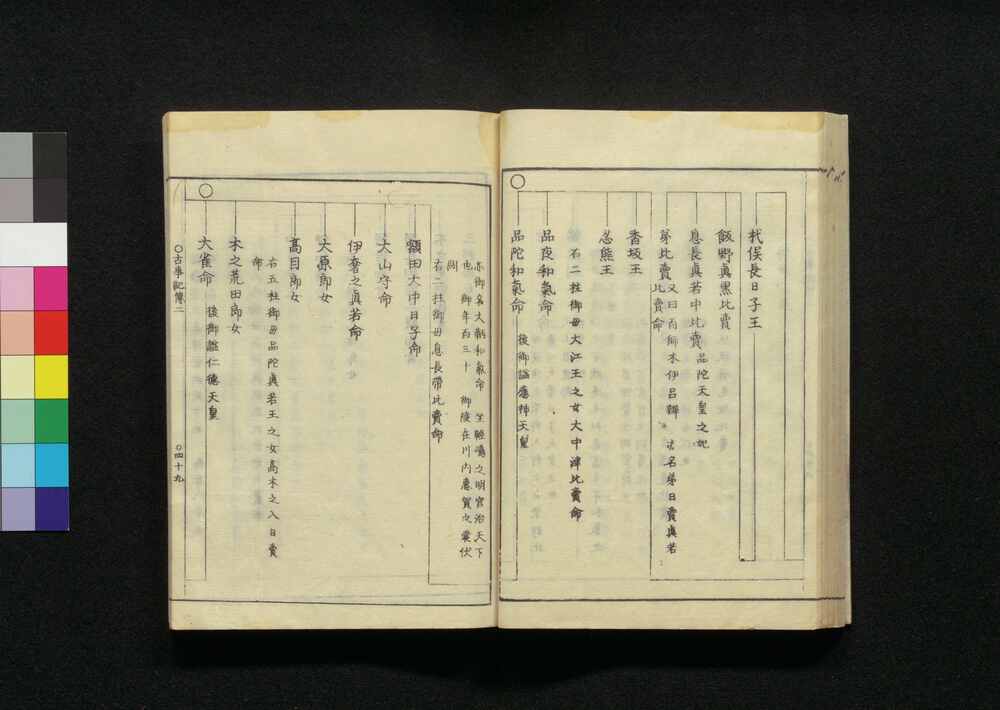 杙俣長日子王
飯野眞黒比賣
息長眞若中比賣 品陀天皇之妃
弟比賣 又曰百師木伊呂辨 亦名弟日賣眞若
比賣命
香坂王
忍熊王
右二柱御母大江王之女大中津比賣命
品夜和氣命
品陀和氣命 後御謚應神天皇
亦御名大鞆和氣命 坐輕嶋之明宮治天下
也 御年百三十 御陵在川内惠賀之裳伏
岡
右二柱御母息長帶比賣命
額田大中日子命
大山守命
伊奢之眞若命
大原郎女
高目郎女
右五柱御母品陀眞若王之女高木之入日賣
命
木之荒田郎女
大雀命 後御謚仁德天皇
○古事記傳二 ○四十九